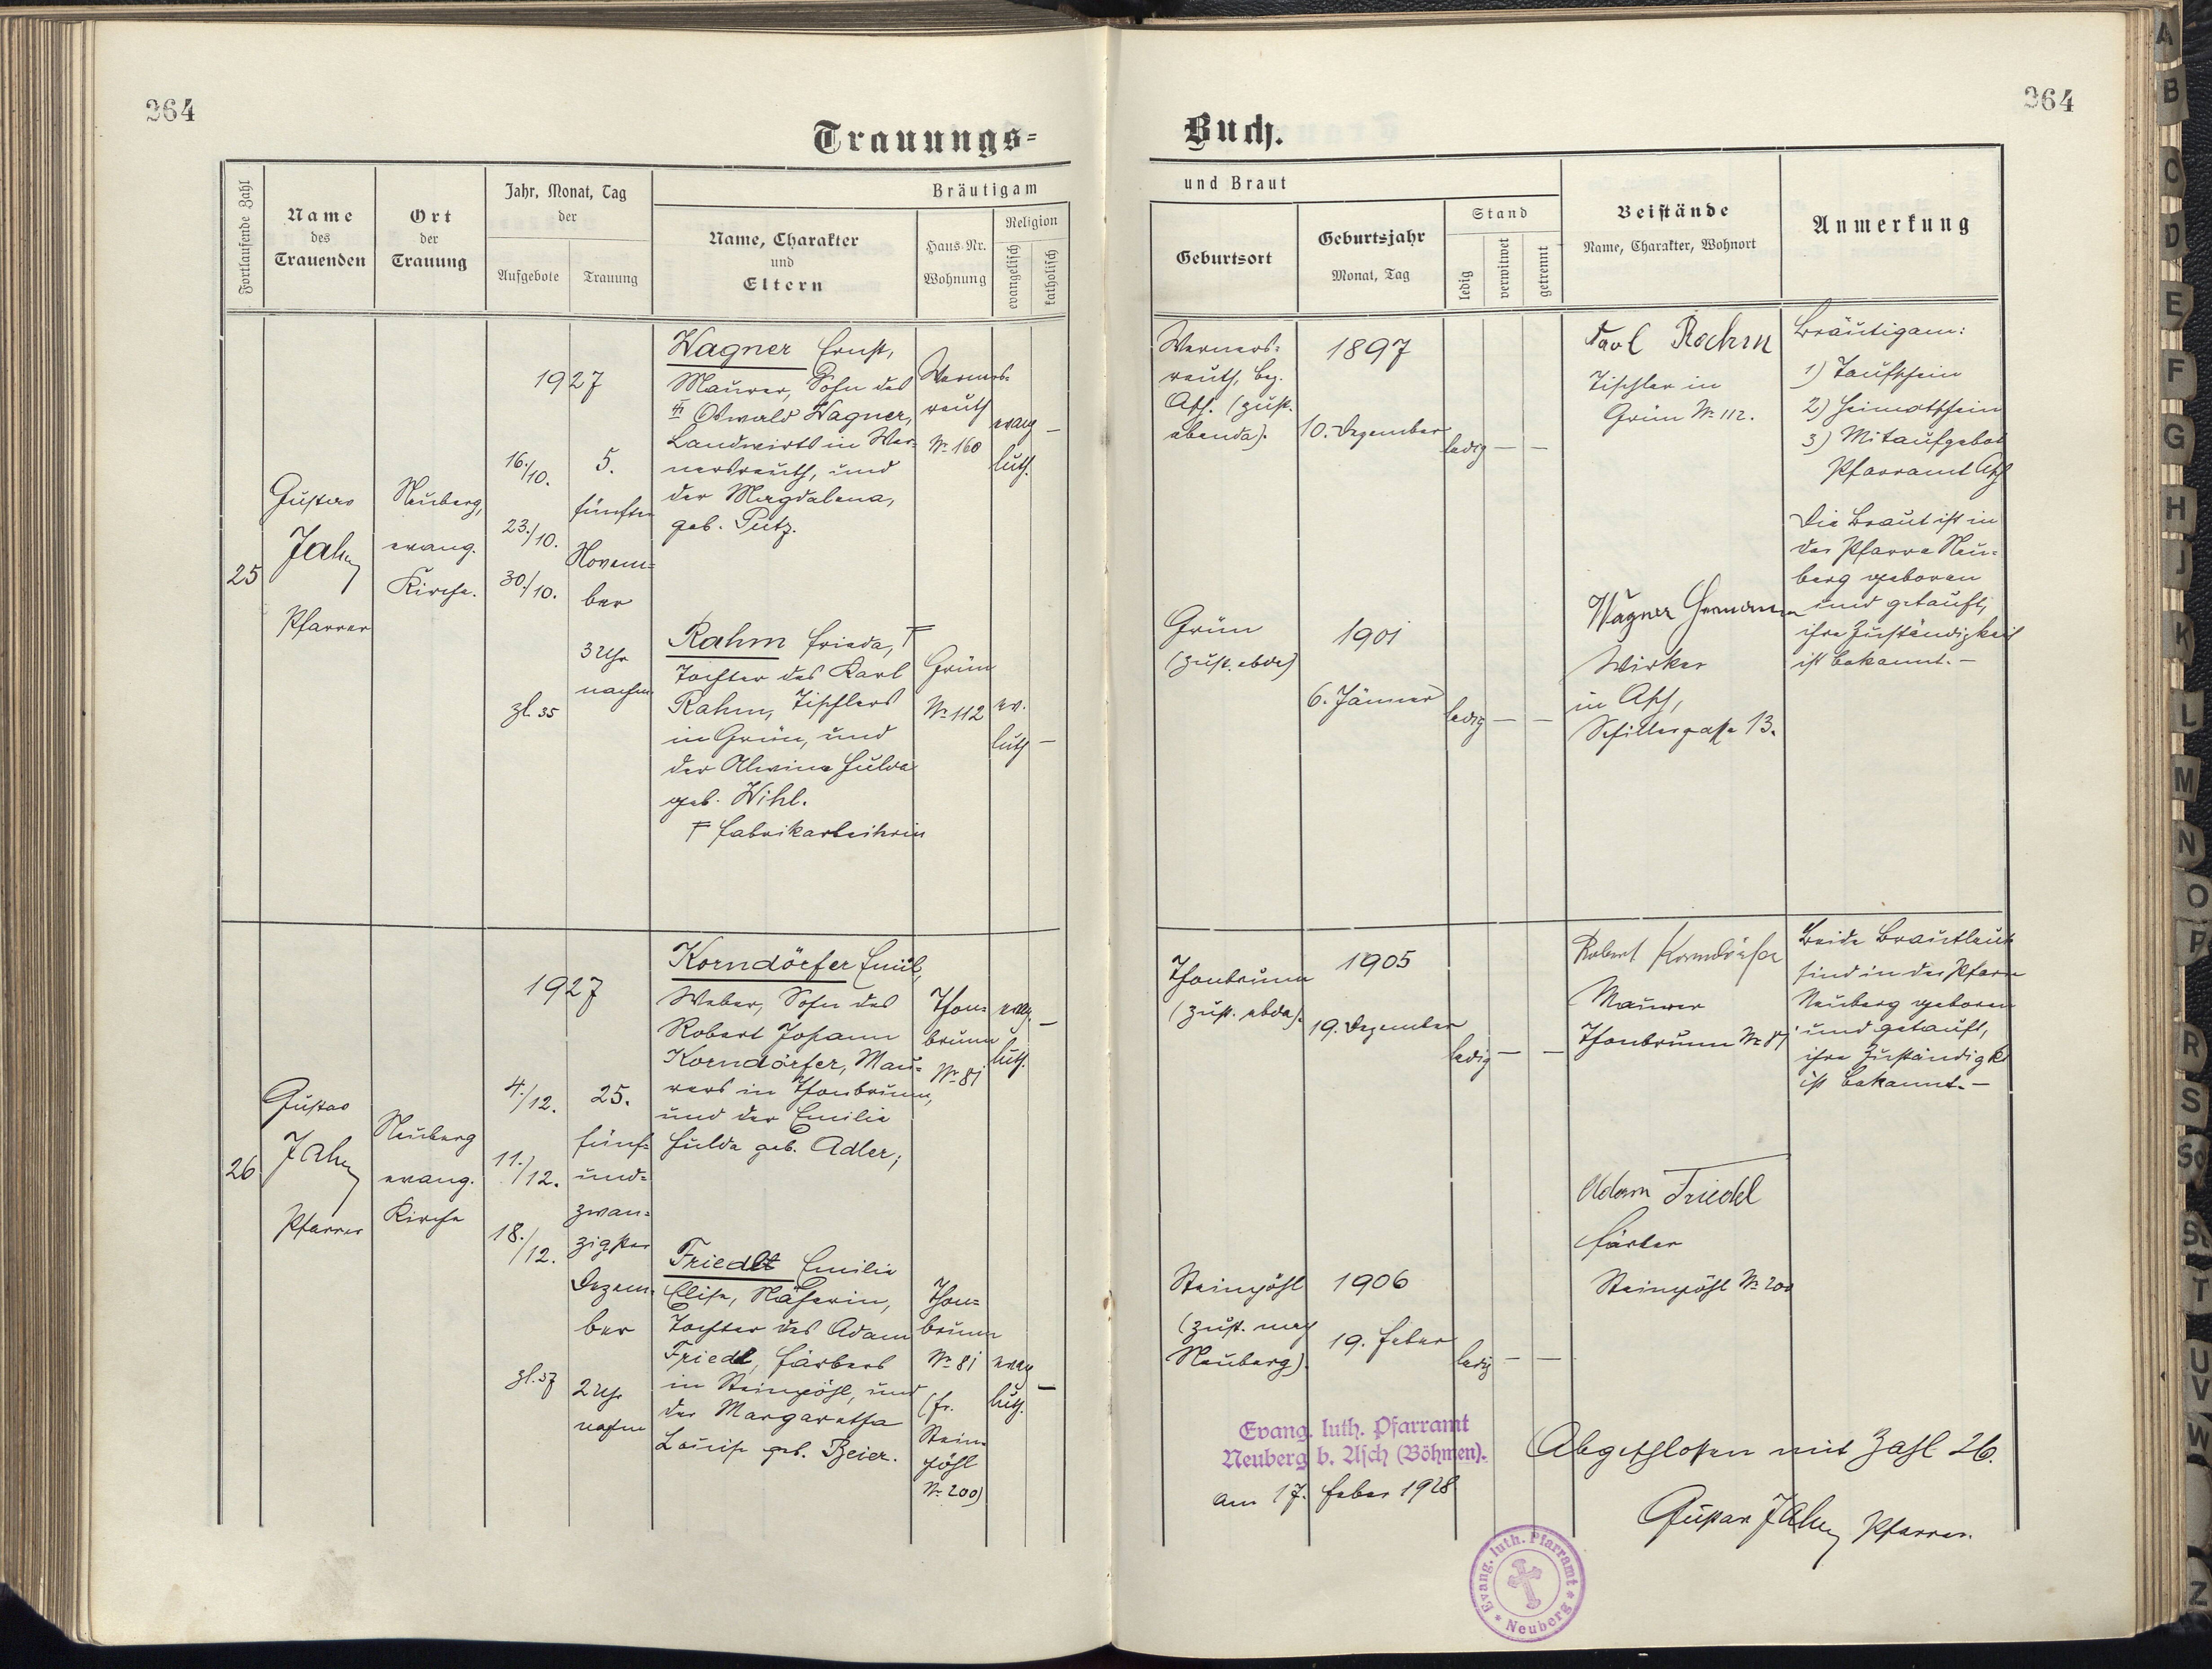 264
264
Trauungs=
Buch.
Fortlaufende Zahl
Name
des
Trauenden
Ort
der
Trauung
Jahr, Monat, Tag
der
Aufgebote
Trauung
Bräutigam
Name, Charakter
und
Eltern
Haus-Nr.
Wohnung
Religion
evangelisch
katholisch
und Braut
Geburtsort
Geburtsjahr
Monat, Tag
Stand
ledig
verwitwet
getrennt
Beistände
Name, Charakter, Wohnort
Anmerkung
25
Gustav
Jahn
Pfarrer
Neuberg,
evang.
Kirche.
1927
16./10.
23./10.
30./10.
zl. 35
5.
fünfter
Novem=
ber
3 Uhr
nachm
Wagner Ernst,
Maurer, Sohn des
Oswald Wagner,
Landwirts in Wer=
nersreuth, und
der Magdalena,
geb. Putz.
Werners=
reuth
Nr. 160
evang
luth.
Rahm Frieda, ╒
Tochter des Karl
Rahm, Tischlers
in Grün, und
der Alwine Hulda
geb. Wihl.
╒ Fabrikarbeiterin
Grün
Nr. 112
ev.
luth
Werners=
reuth, bez.
Asch. (zust.
ebenda).
1897
10. Dezember
ledig — —
Karl Rahm
Tischler in
Grün Nr. 112.
Bräutigam:
1) Taufschein
2) Heimatschein
3) Mitaufgebot
Pfarramt Asch
Die Braut ist in
der Pfarre Neu=
berg geboren
und getauft,
ihre Zuständigkeit
ist bekannt. —
Grün
(zust. ebda)
1901
6. Jänner
ledig — —
Wagner Hermann
Wirker
in Asch,
Schillergasse 13.
26
Gustav
Jahn
Pfarrer
Neuberg
evang.
Kirche
1927
4./12.
11./12.
18./12.
zl. 37
25.
fünf=
und=
zwan=
zigster
Dezem=
ber
2 Uhr
nachm
Korndörfer Emil,
Weber, Sohn des
Robert Johann
Korndörfer, Mau=
rers in Thonbrunn,
und der Emilie
Hulda geb. Adler;
Thon=
brunn
Nr. 81
evang.
luth.
Friedl Emilie
Elise, Näherin,
Tochter des Adam
Friedl, Färbers
in Steinpöhl, und
der Margaretha
Louise geb. Beier.
Thon=
brunn
Nr. 81
(fr.
Stein=
pöhl
Nr. 200)
evang
luth.
Thonbrunn
(zust. ebda).
1905
19. Dezember
ledig — —
Robert Korndörfer
Maurer
Thonbrunn Nr. 81
Beide Brautleute
sind in der Pfarre
Neuberg geboren
und getauft,
ihre Zuständigk.
ist bekannt. —
Steinpöhl
(zust. nach
Neuberg).
1906
19. Feber
ledig — —
Adam Friedl
Färber
Steinpöhl Nr. 200
Evang. luth. Pfarramt
Neuberg b. Asch (Böhmen).
am 17. Feber 1928
Abgeschlossen mit Zahl 26.
Gustav Jahn Pfarrer.
Evang. luth. Pfarramt * Neuberg *
A
B
C
D
E
F
G
H
J
K
L
M
N
O
P
R
S
Sch
St
T
U
V
W
Z